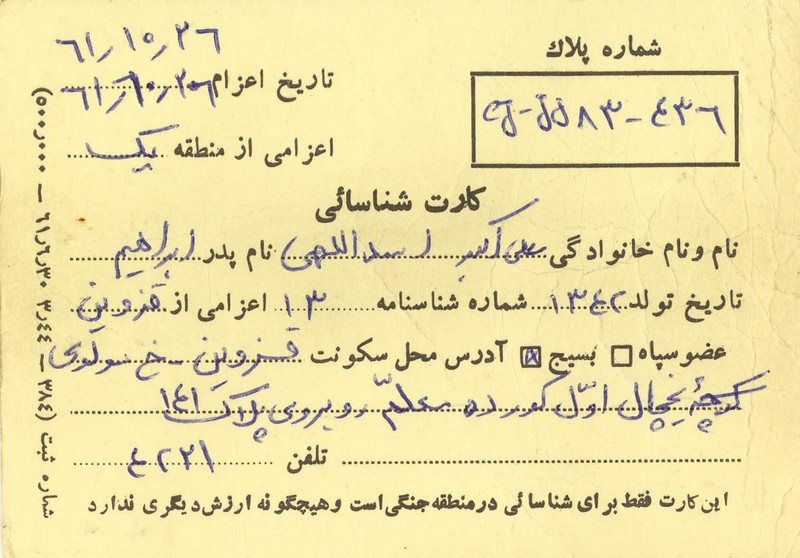 شماره پلاك
۶۱٫۱۰٫۲۶
تاریخ اعزام ۶۱٫۱۰٫۲۰۶
JJ۸۳-۴۳۶
اعزامی از منطقه یک
کارت شناسائی
نام ونام خانوادگی علی اکبر اسداللهی نام پدر ابراهیم
تاریخ تولد ۱۳۴۲ شماره شناسنامه ۱۳ اعزامی از قزوین
عضوسپاه □ بسیج ☒ آدرس محل سکونت قزوین - خ مولوی
کوچهٔ یخچال اوّل کورده معلمّ روبروی پلاک ۱۴۱
تلفن ۴۲۲۱
این کارت فقط برای شناسائی درمنطقه جنگی است وهیچگونه ارزش دیگری ندارد
شماره ثبت (۳۸۴ – ۳٫۴۴ ۶۱٫۶٫۳۰ – ۵۰۰٫۰۰۰)